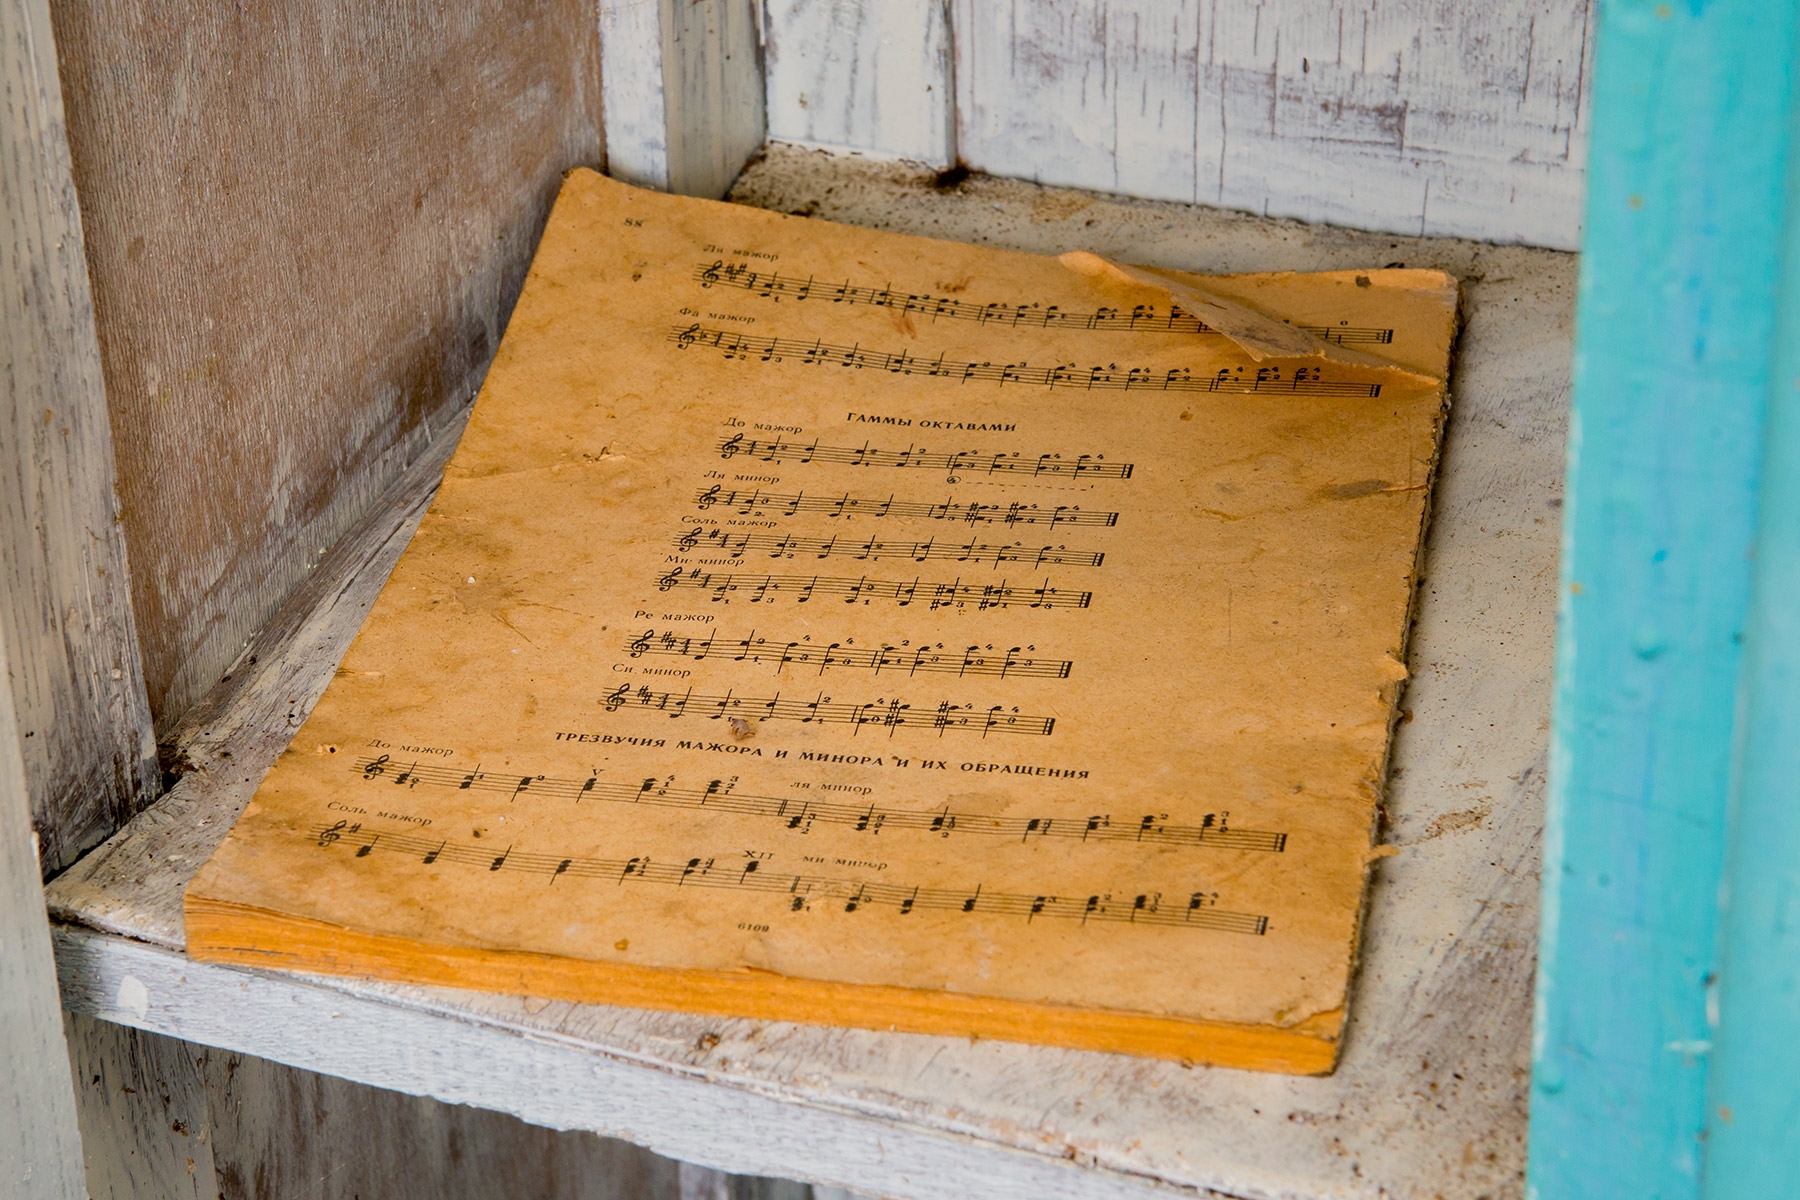 88
Ля мажор
Фа мажор
ГАММЫ ОКТАВАМИ
До мажор
Ля минор
Соль мажор
Ми минор
Ре мажор
Си минор
ТРЕЗВУЧИЯ МАЖОРА И МИНОРА И ИХ ОБРАЩЕНИЯ
До мажор
V
ля минор
Соль мажор
XII
ми минор
6109